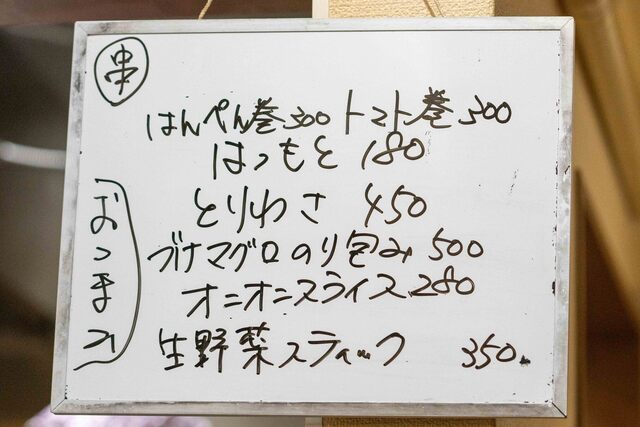 串
はんぺん巻300 トマト巻300
はつもと 180
おつまみ
とりわさ 450
ブナマグロのり包み 500
オニオニスライス 280
生野菜スティック 350